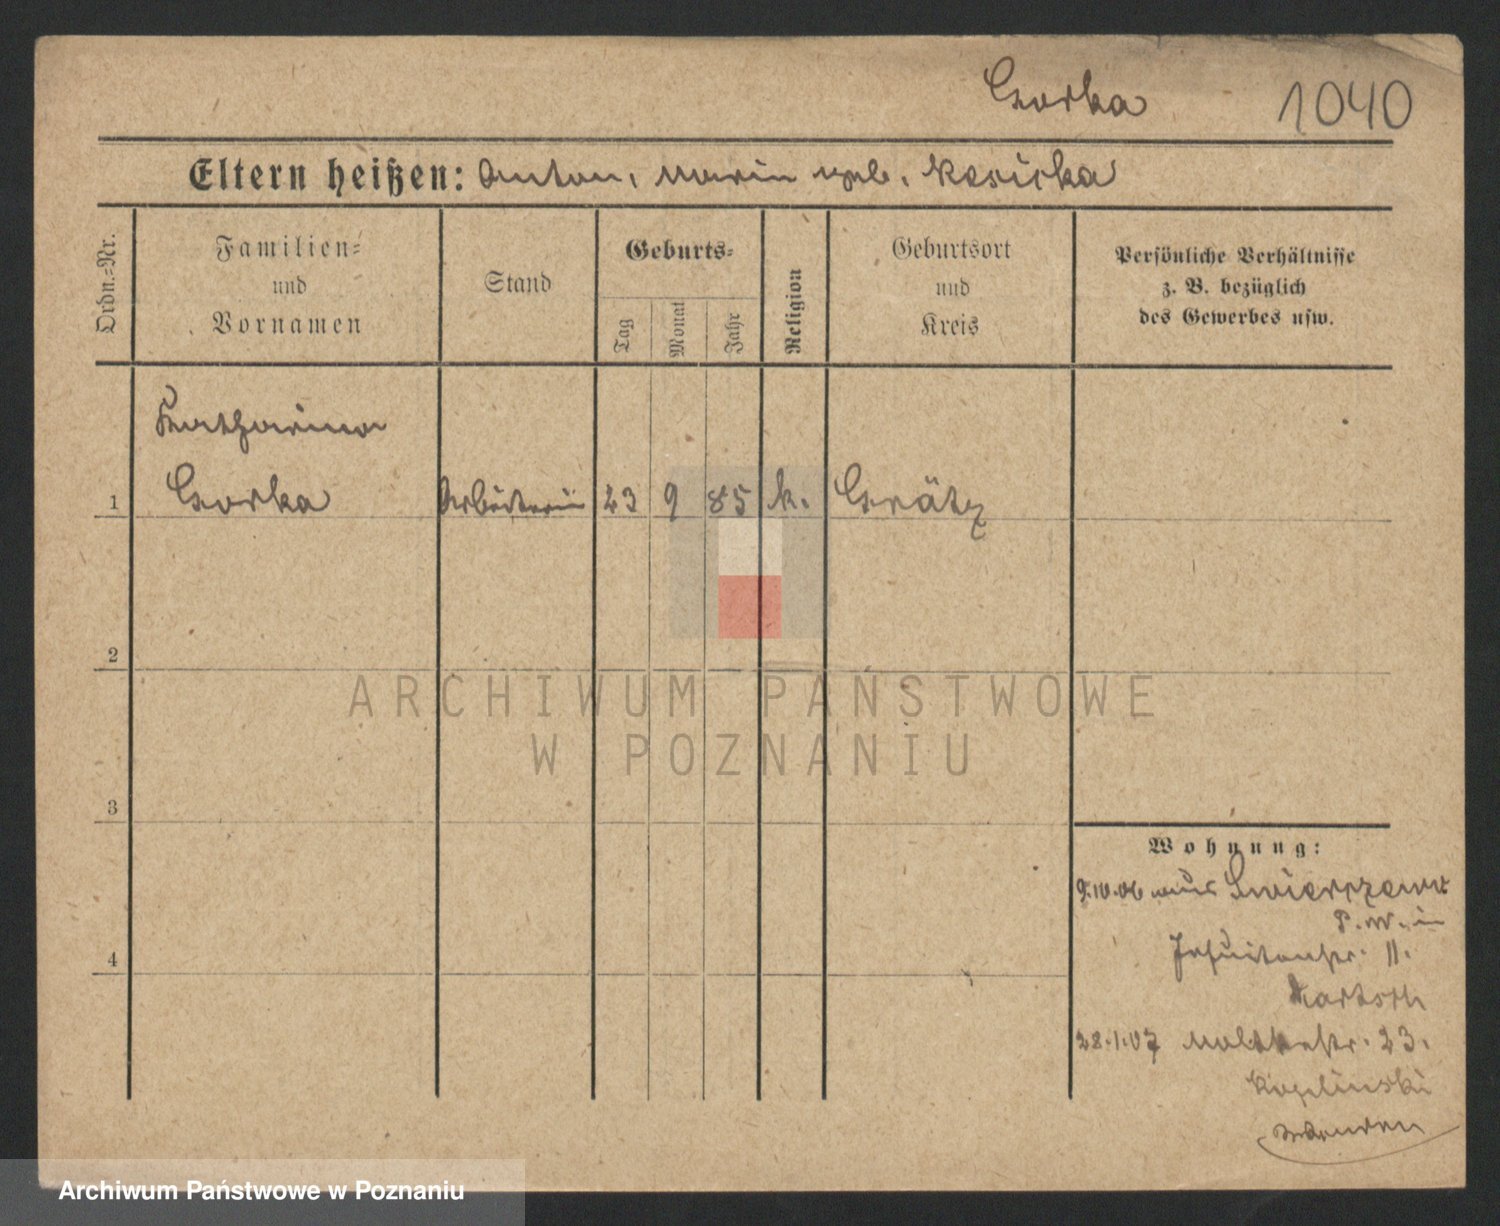 Gorka 1040
Eltern heißen: Anton, Maria geb. Kosicka
Ordn.=Nr.
Familien=
und
Vornamen
Stand
Geburts=
Tag
Monat
Jahr
Religion
Geburtsort
und
Kreis
Persönliche Verhältnisse
z. B. bezüglich
des Gewerbes usw.
Katharina
1 Gorka Arbeiterin 23 9 85 k. Grätz
2
ARCHIWUM PAŃSTWOWE
W POZNANIU
3
Wohnung:
9.10.06 aus
P. W. in
Jesuitenstr. 11.
4
28.1.07 Moltkestr. 23.
Archiwum Państwowe w Poznaniu